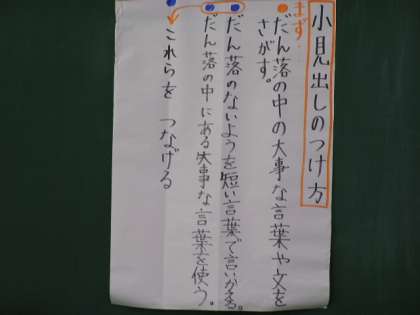 小見出しのつけ方
まず
だん落の中の大事な言葉や文を
さがす。
だん落のないようを短い言葉で言いかえる。
だん落の中にある大事な言葉を使う。
これらを つなげる